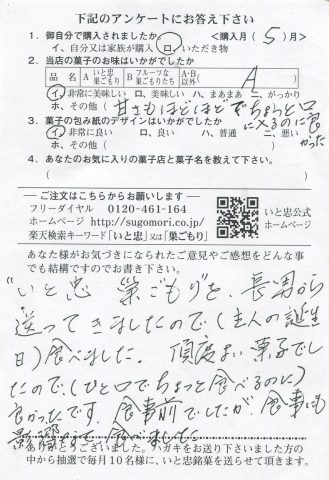 下記のアンケートにお答え下さい
1. 御自分で購入されましたか。 <購入月( 5 )月>
イ、自分又は家族が購入 ロ、いただき物
2. 当店の菓子のお味はいかがでしたか
品名 A いと忠巣ごもり B フルーツな果子たち A・B以外( A )
イ、非常に美味しい ロ、美味しい ハ、まあまあ ニ、がっかり
ホ、その他( 甘さもほどほどでちょっと口に入るのに良かった
3. 菓子の包み紙のデザインはいかがでしたか
イ、非常に良い ロ、良い ハ、普通 ニ、悪い
ホ、その他(
4. あなたのお気に入りの菓子店と菓子名を教えて下さい。
( )
ご注文はこちらからお願いします
フリーダイヤル 0120-461-164
ホームページ http://sugomori.co.jp/
楽天検索キーワード「いと忠」又は「巣ごもり」
いと忠公式
ホームページ
あなた様がお気づきになられたご意見やご感想をどんな事
でも結構ですのでお書き下さい。
"いと忠 巣ごもり"を、長男から
送ってきましたので(主人の誕生
日)食べました。 頂度よい菓子でし
たので、(ひと口でちょっと食べるのに)
良かったです。食事前でしたが、食事にも
影響なで、食べました。
ありがとうございました。ハガキをお送り下さいました方の
中から抽選で毎月10名様に、いと忠銘菓を送らせて頂きます。